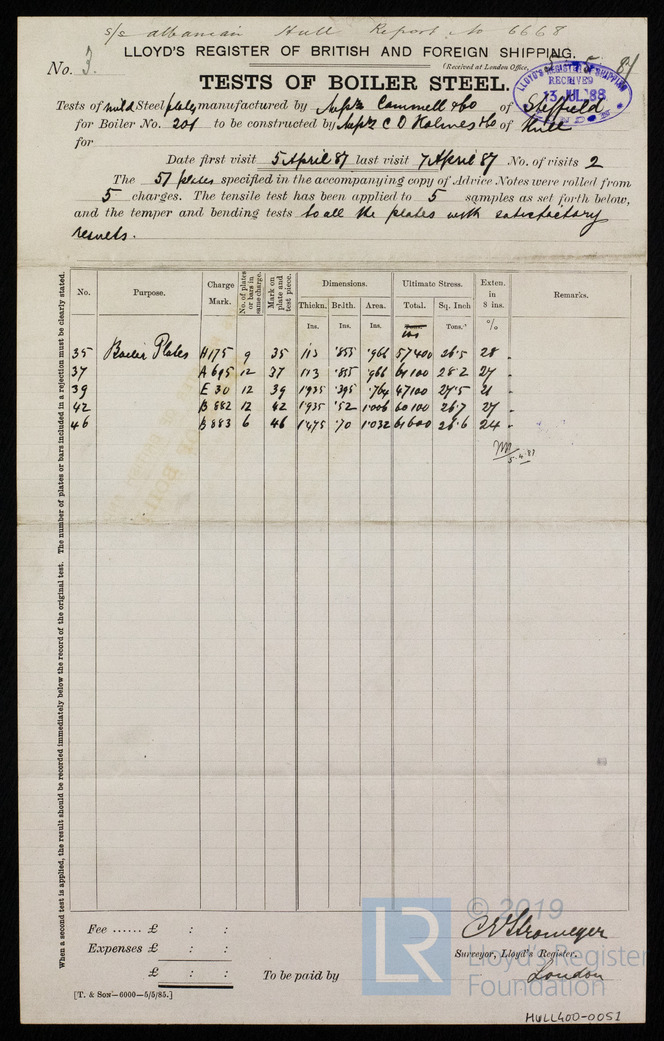 s/s Albanian Hull Report No 6668
LLOYD'S REGISTER OF BRITISH AND FOREIGN SHIPPING.
No. 3.
(Received at London Office,
LLOYD'S REGISTER OF SHIPPING
RECEIVED
13 JUL 88
LONDON
TESTS OF BOILER STEEL.
Tests of mild Steel plates manufactured by Mess Cammell & Co of Sheffield
for Boiler No. 201 to be constructed by Mess C D Holmes & Co of Hull
for
Date first visit 5 April 87 last visit 7 April 87 No. of visits 2
The 51 plates specified in the accompanying copy of Advice Notes were rolled from
5 charges. The tensile test has been applied to 5 samples as set forth below,
and the temper and bending tests to all the plates with satisfactory
results.
When a second test is applied, the result should be recorded immediately below the record of the original test. The number of plates or bars included in a rejection must be clearly stated.
No. Purpose. Charge Mark. No. of plates or bars in same charge. Mark on plate and test piece. Dimensions. Ultimate Stress. Exten. in 8 ins. Remarks.
Thickn. Br.lth. Area. Total. Sq. Inch
Ins. Ins. Ins. lbs Tons. %
35 Boiler Plates H175 9 35 1·13 ·855 ·966 57400 26·5 28 "
37 A695 12 37 1·13 ·855 ·966 61100 28·2 27 "
39 E 30 12 39 1·935 ·395 ·764 47100 27·5 21 "
42 B 882 12 42 1·935 ·52 1·006 60100 26·7 27 "
46 B 883 6 46 1·475 ·70 1·032 61600 26·6 24 "
5.4.87
Fee ...... £ : :
Expenses £ : :
£ : :
To be paid by
C Stromeyer
Surveyor, Lloyd's Register.
London
[T. & SON—6000—5/5/85.]
LR
© 2019
Lloyd's Register
Foundation
HULL400-0051